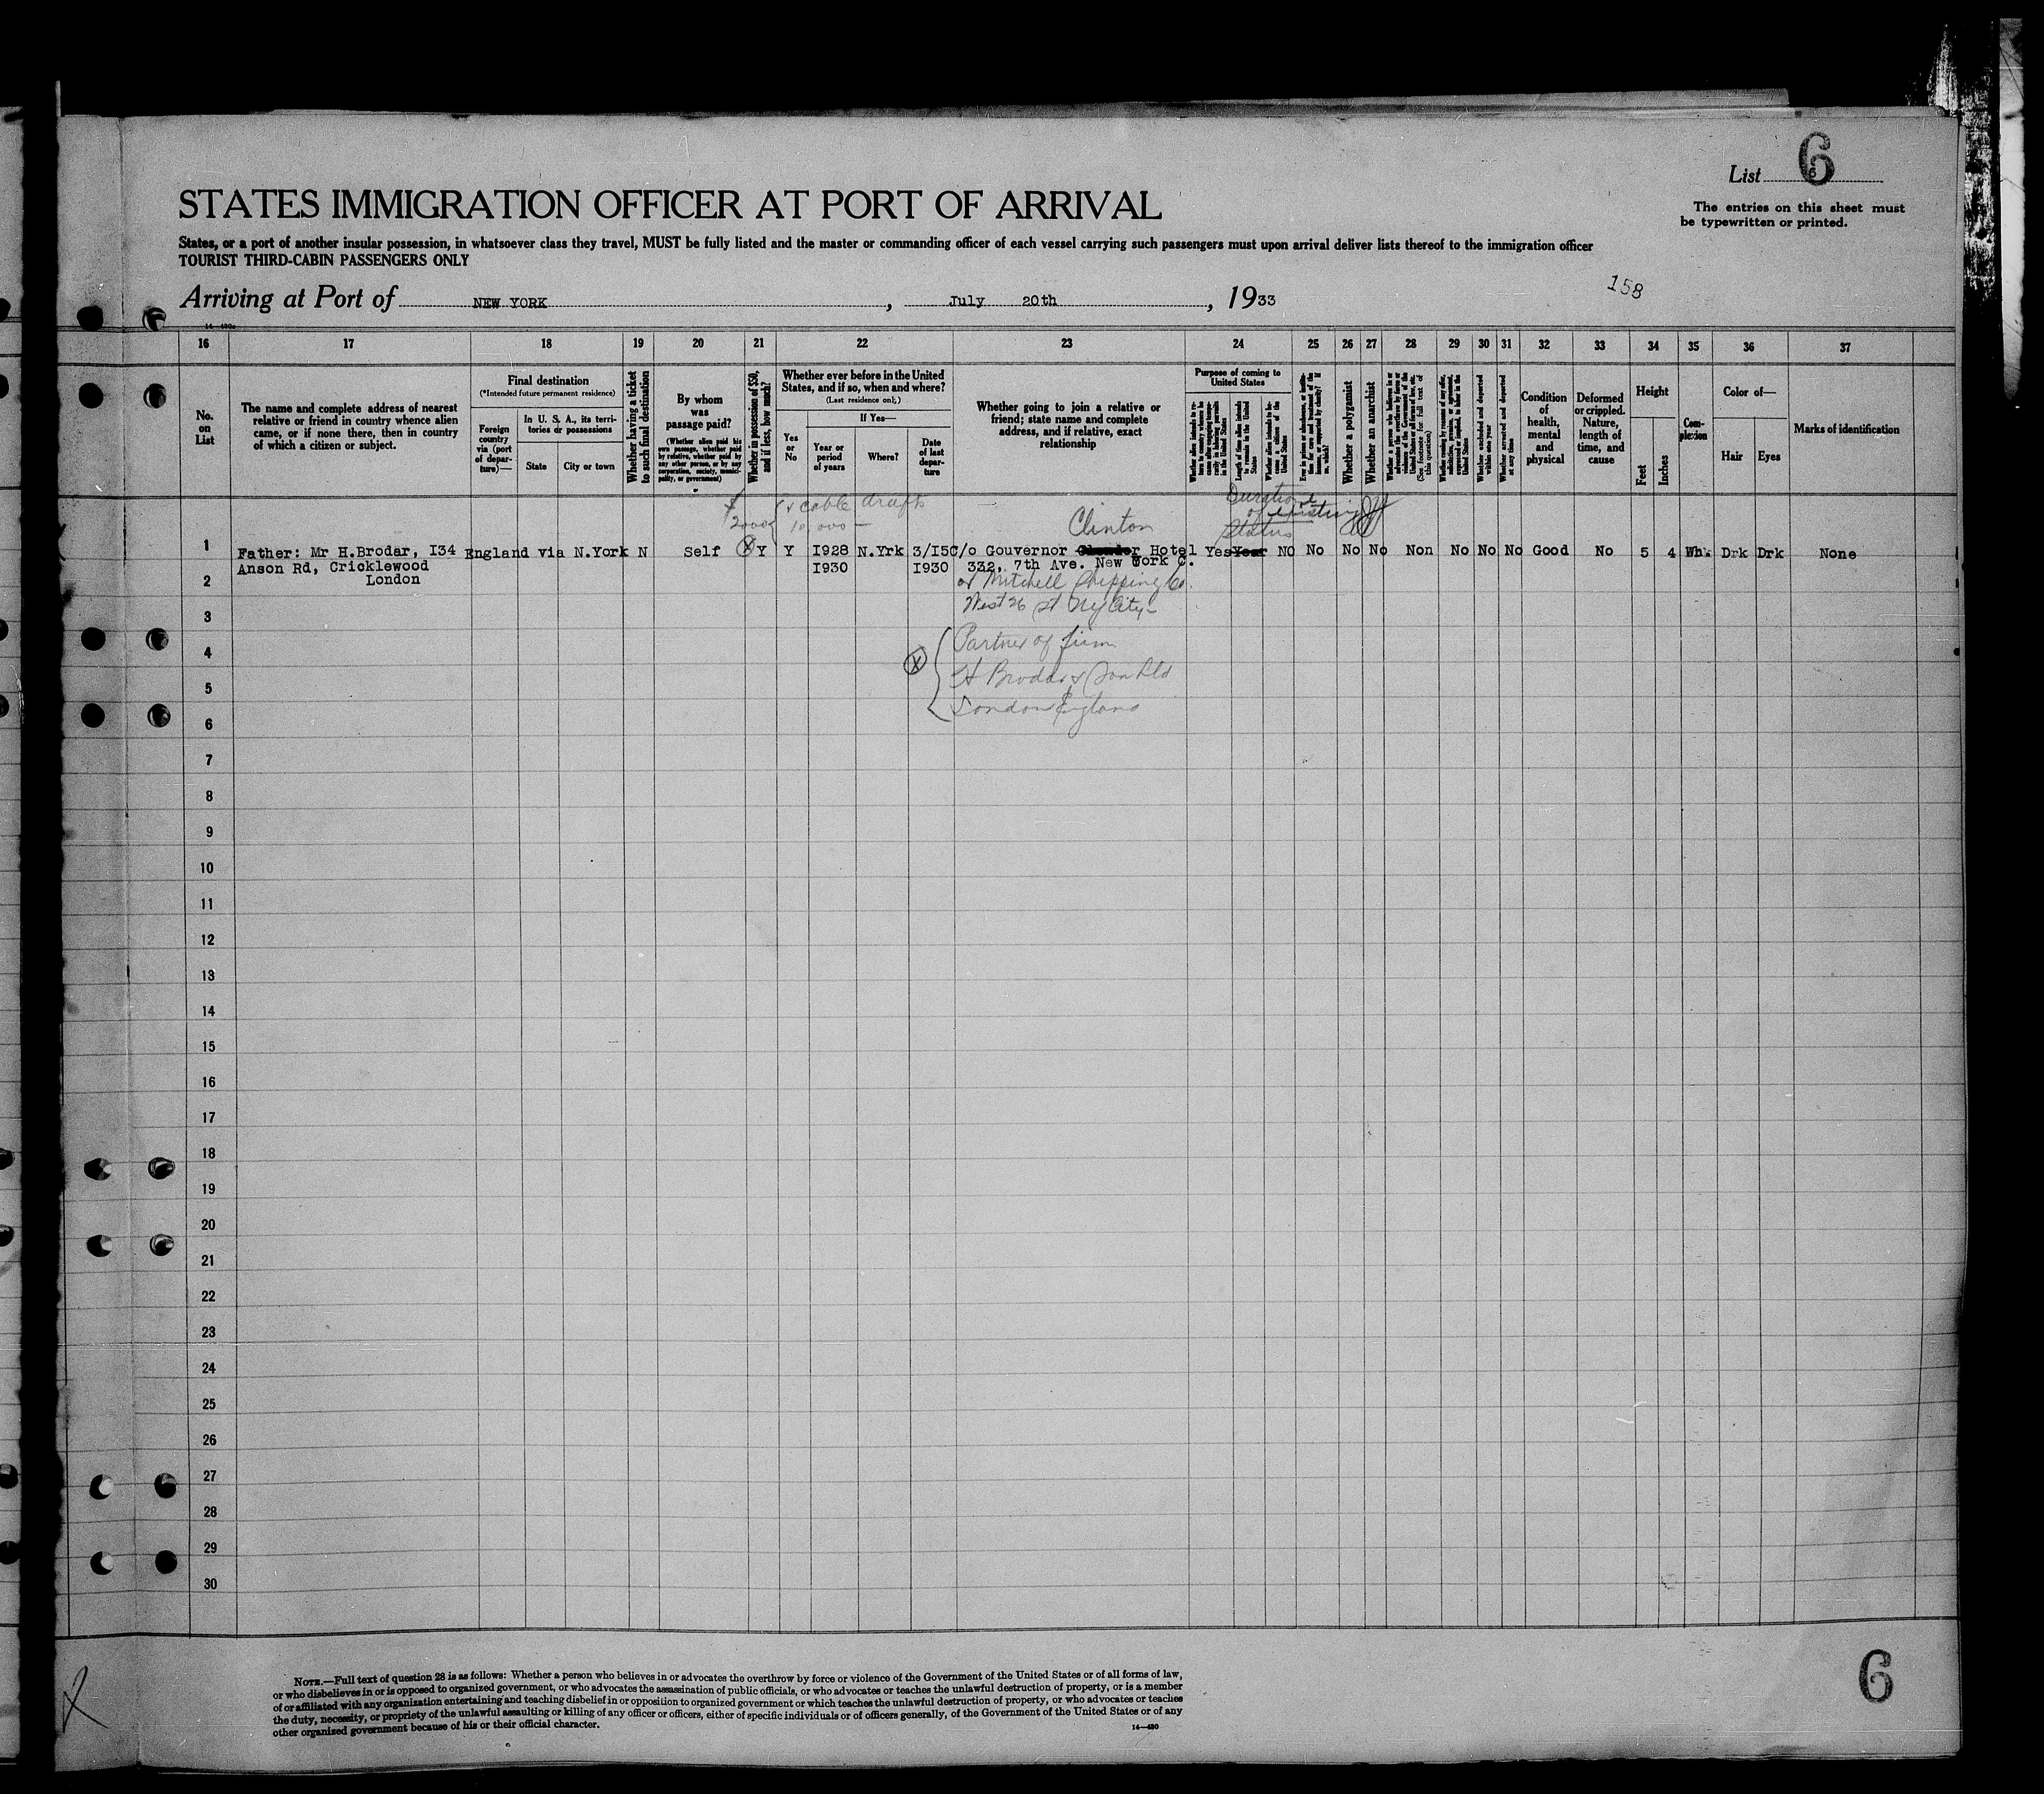 List 6
The entries on this sheet must
be typewritten or printed.
STATES IMMIGRATION OFFICER AT PORT OF ARRIVAL
States, or a port of another insular possession, in whatsoever class they travel, MUST be fully listed and the master or commanding officer of each vessel carrying such passengers must upon arrival deliver lists thereof to the immigration officer
TOURIST THIRD-CABIN PASSENGERS ONLY
Arriving at Port of NEW YORK, July 20th, 1933
158
16 17 18 19 20 21 22 23 24 25 26 27 28 29 30 31 32 33 34 35 36 37
No.
on
List
The name and complete address of nearest
relative or friend in country whence alien
came, or if none there, then in country
of which a citizen or subject.
Final destination
(*Intended future permanent residence)
Foreign
country
via (port
of depar-
ture)—
In U. S. A., its terri-
tories or possessions
State
City or town
Whether having a ticket
to such final destination
By whom
was
passage paid?
(Whether alien paid his
own passage, whether paid
by relative, whether paid by
any other person, or by any
corporation, society, munici-
pality, or government)
Whether in possession of $50,
and if less, how much?
Whether ever before in the United
States, and if so, when and where?
(Last residence only.)
Yes
or
No
If Yes—
Year or
period
of years
Where?
Date
of last
depar-
ture
Whether going to join a relative or
friend; state name and complete
address, and if relative, exact
relationship
Purpose of coming to
United States
Whether a polygamist
Whether an anarchist
(See footnote for full text of
this question)
Whether excluded and deported
within one year
Whether arrested and deported
at any time
Condition
of
health,
mental
and
physical
Deformed
or crippled.
Nature,
length of
time, and
cause
Height
Feet
Inches
Com-
plexion
Color of—
Hair
Eyes
Marks of identification
& cable draft
2000 10,000 —
Clinton
Duration
of existing
Status
1 Father: Mr H.Brodar, I34 England via N.York N Self X Y Y I928 N.Yrk 3/I5 C/o Gouvernor Hotel Yes Year NO No No No Non No No No Good No 5 4 Wh. Drk Drk None
Anson Rd, Cricklewood I930 I930 332, 7th Ave. New York C.
2 London or Mitchell Shipping Co.
West 26 st Ny City-
3
4 X Partner of firm
5 H Brodar & Son Ltd
6 London England
7
8
9
10
11
12
13
14
15
16
17
18
19
20
21
22
23
24
25
26
27
28
29
30
NOTE.—Full text of question 28 is as follows: Whether a person who believes in or advocates the overthrow by force or violence of the Government of the United States or of all forms of law,
or who disbelieves in or is opposed to organized government, or who advocates the assassination of public officials, or who advocates or teaches the unlawful destruction of property, or is a member
of or affiliated with any organization entertaining and teaching disbelief in or opposition to organized government or which teaches the unlawful destruction of property, or who advocates or teaches
the duty, necessity, or propriety of the unlawful assaulting or killing of any officer or officers, either of specific individuals or of officers generally, of the Government of the United States or of any
other organized government because of his or their official character.
14—480
6